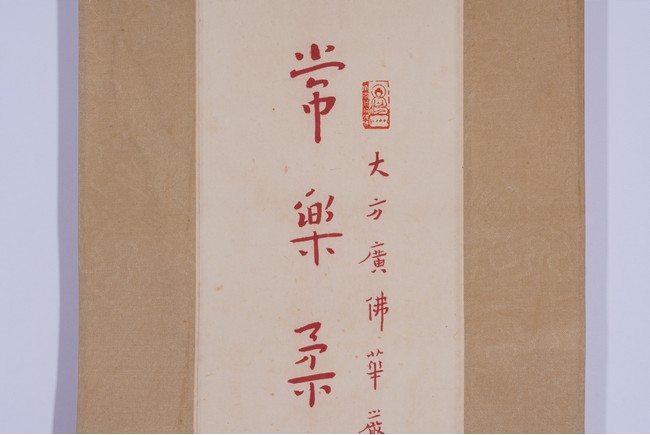 大方廣佛華嚴
常樂柔